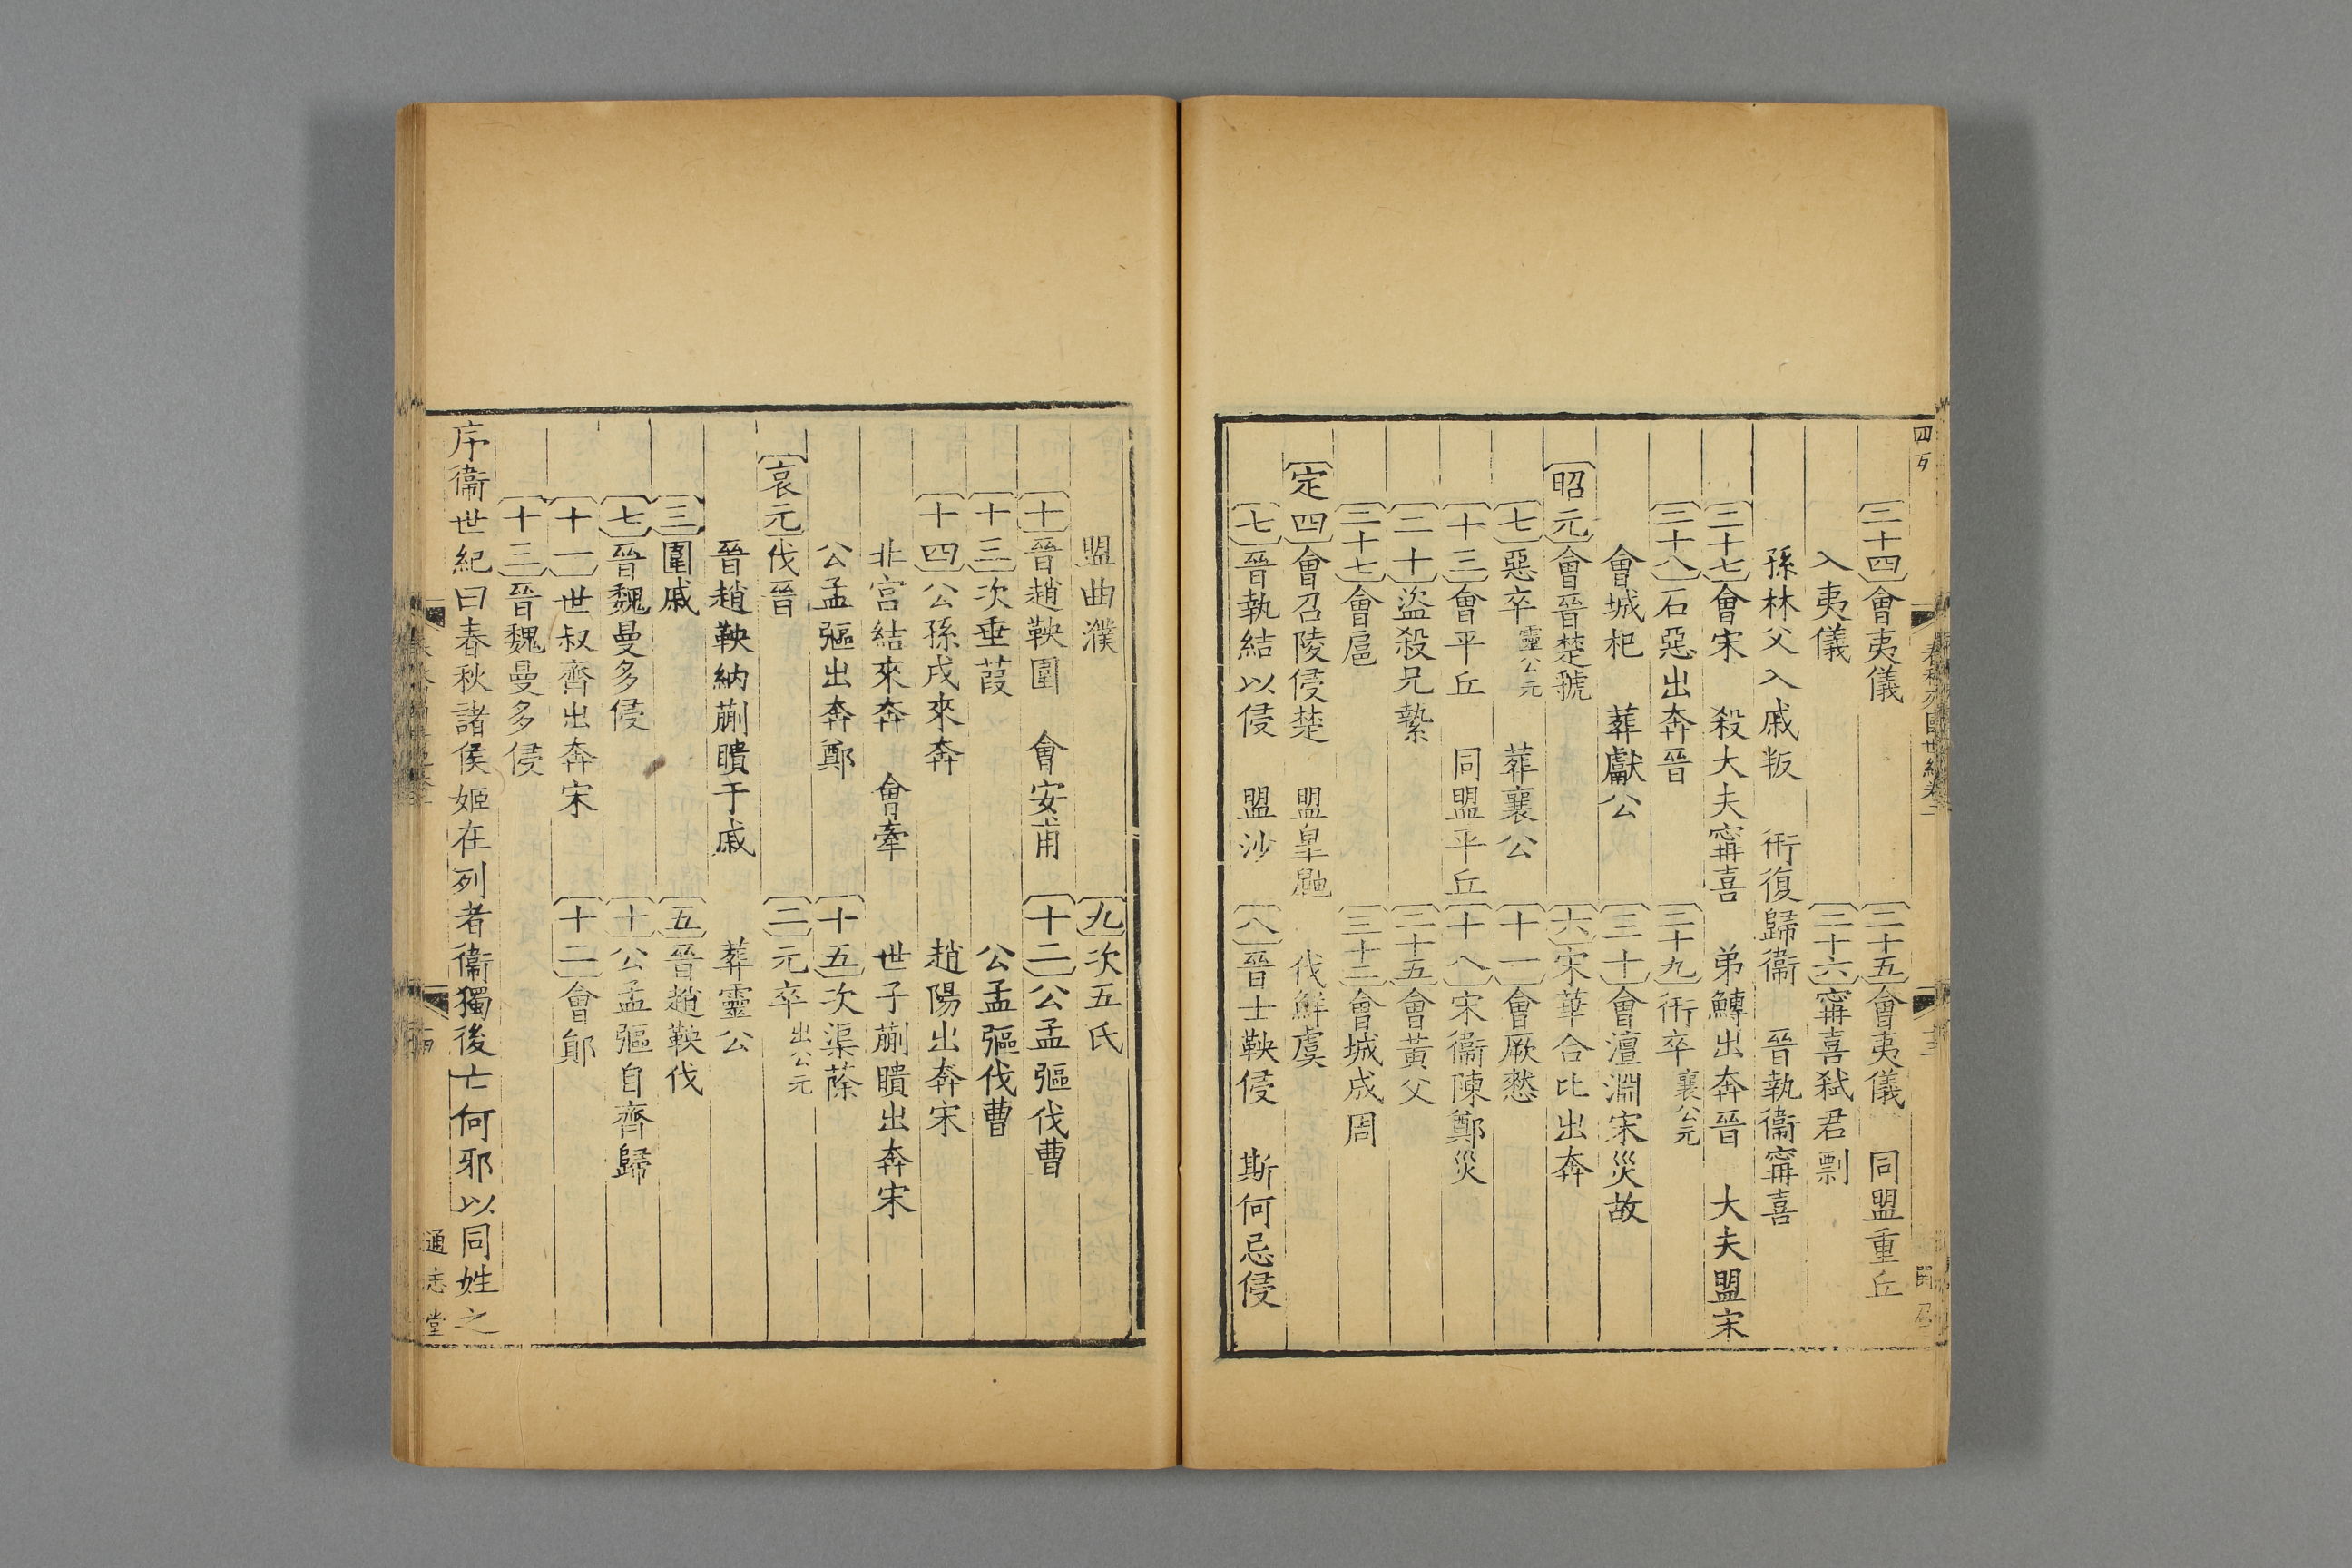 二十四會夷儀 二十五會夷儀 同盟重丘
入夷儀 二十六甯喜弑君剽
孫林父入戚叛 衎復歸衞 晉執衞甯喜
二十七會宋 殺大夫甯喜 弟鱄出奔晉 大夫盟宋
二十八石惡出奔晉 二十九衎卒襄公元
會城杞 葬獻公 三十會澶淵宋災故
昭元會晉楚虢 六宋華合比出奔
七惡卒靈公元 葬襄公 十一會厥憖
十三會平丘 同盟平丘 十八宋衞陳鄭災
二十盜殺兄縶 二十五會黃父
二十七會扈 三十二會城成周
定四會召陵侵楚 盟皐鼬 伐鮮虞
七晉執結以侵 盟沙 八晉士鞅侵 斯何忌侵
盟曲濮 九次五氏
十晉趙鞅圍 會安甫 十二公孟彄伐曹
十三次垂葭 公孟彄伐曹
十四公孫戌來奔 趙陽出奔宋
北宮結來奔 會牽 世子蒯聵出奔宋
公孟彄出奔鄭 十五次渠蒢
哀元伐晉 二元卒出公元
晉趙鞅納蒯聵于戚 葬靈公
三圍戚 五晉趙鞅伐
七晉魏曼多侵 十公孟彄自齊歸
十一世叔齊出奔宋 十二會鄖
十三晉魏曼多侵
序衞世紀曰春秋諸侯姬在列者衞獨後亡何邪以同姓之
通志堂